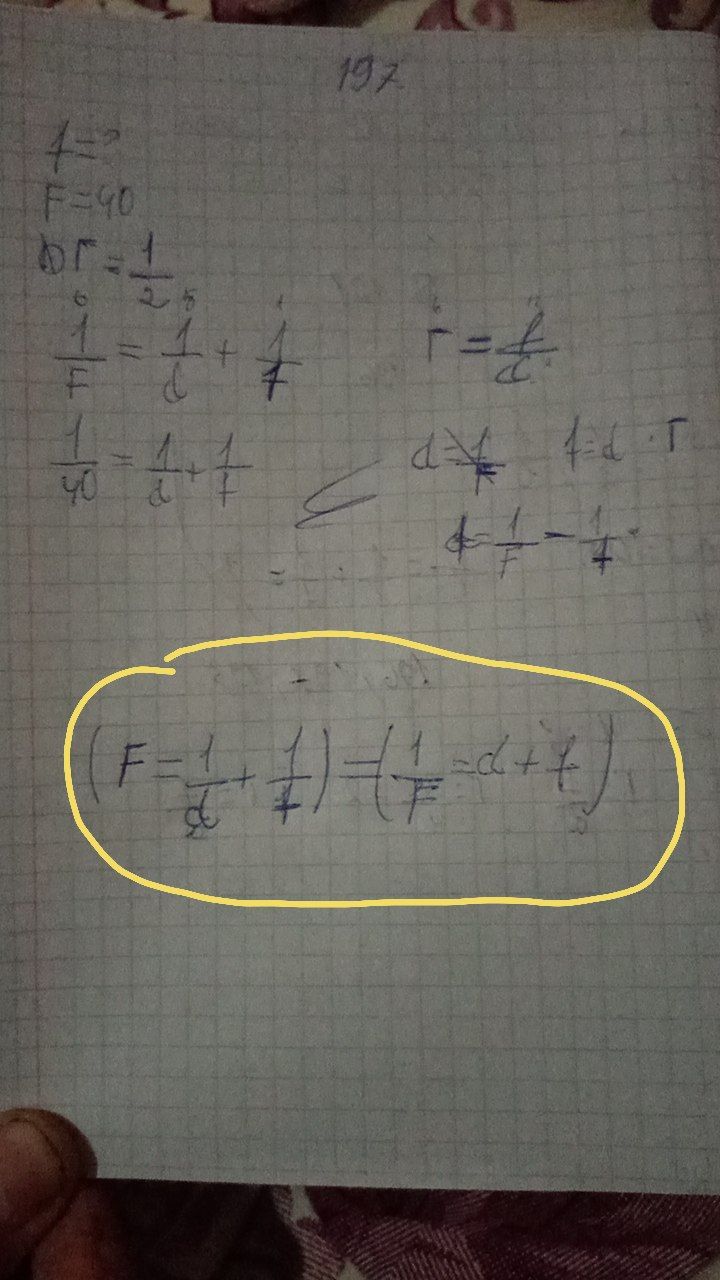 197
f=?
F=40
Г=1/2
1/F=1/d+1/f Г=f/d
1/40=1/d+1/f d=f/F f=d·Г
d=1/F-1/f
(F=1/d+1/f)=(1/F=d+f)